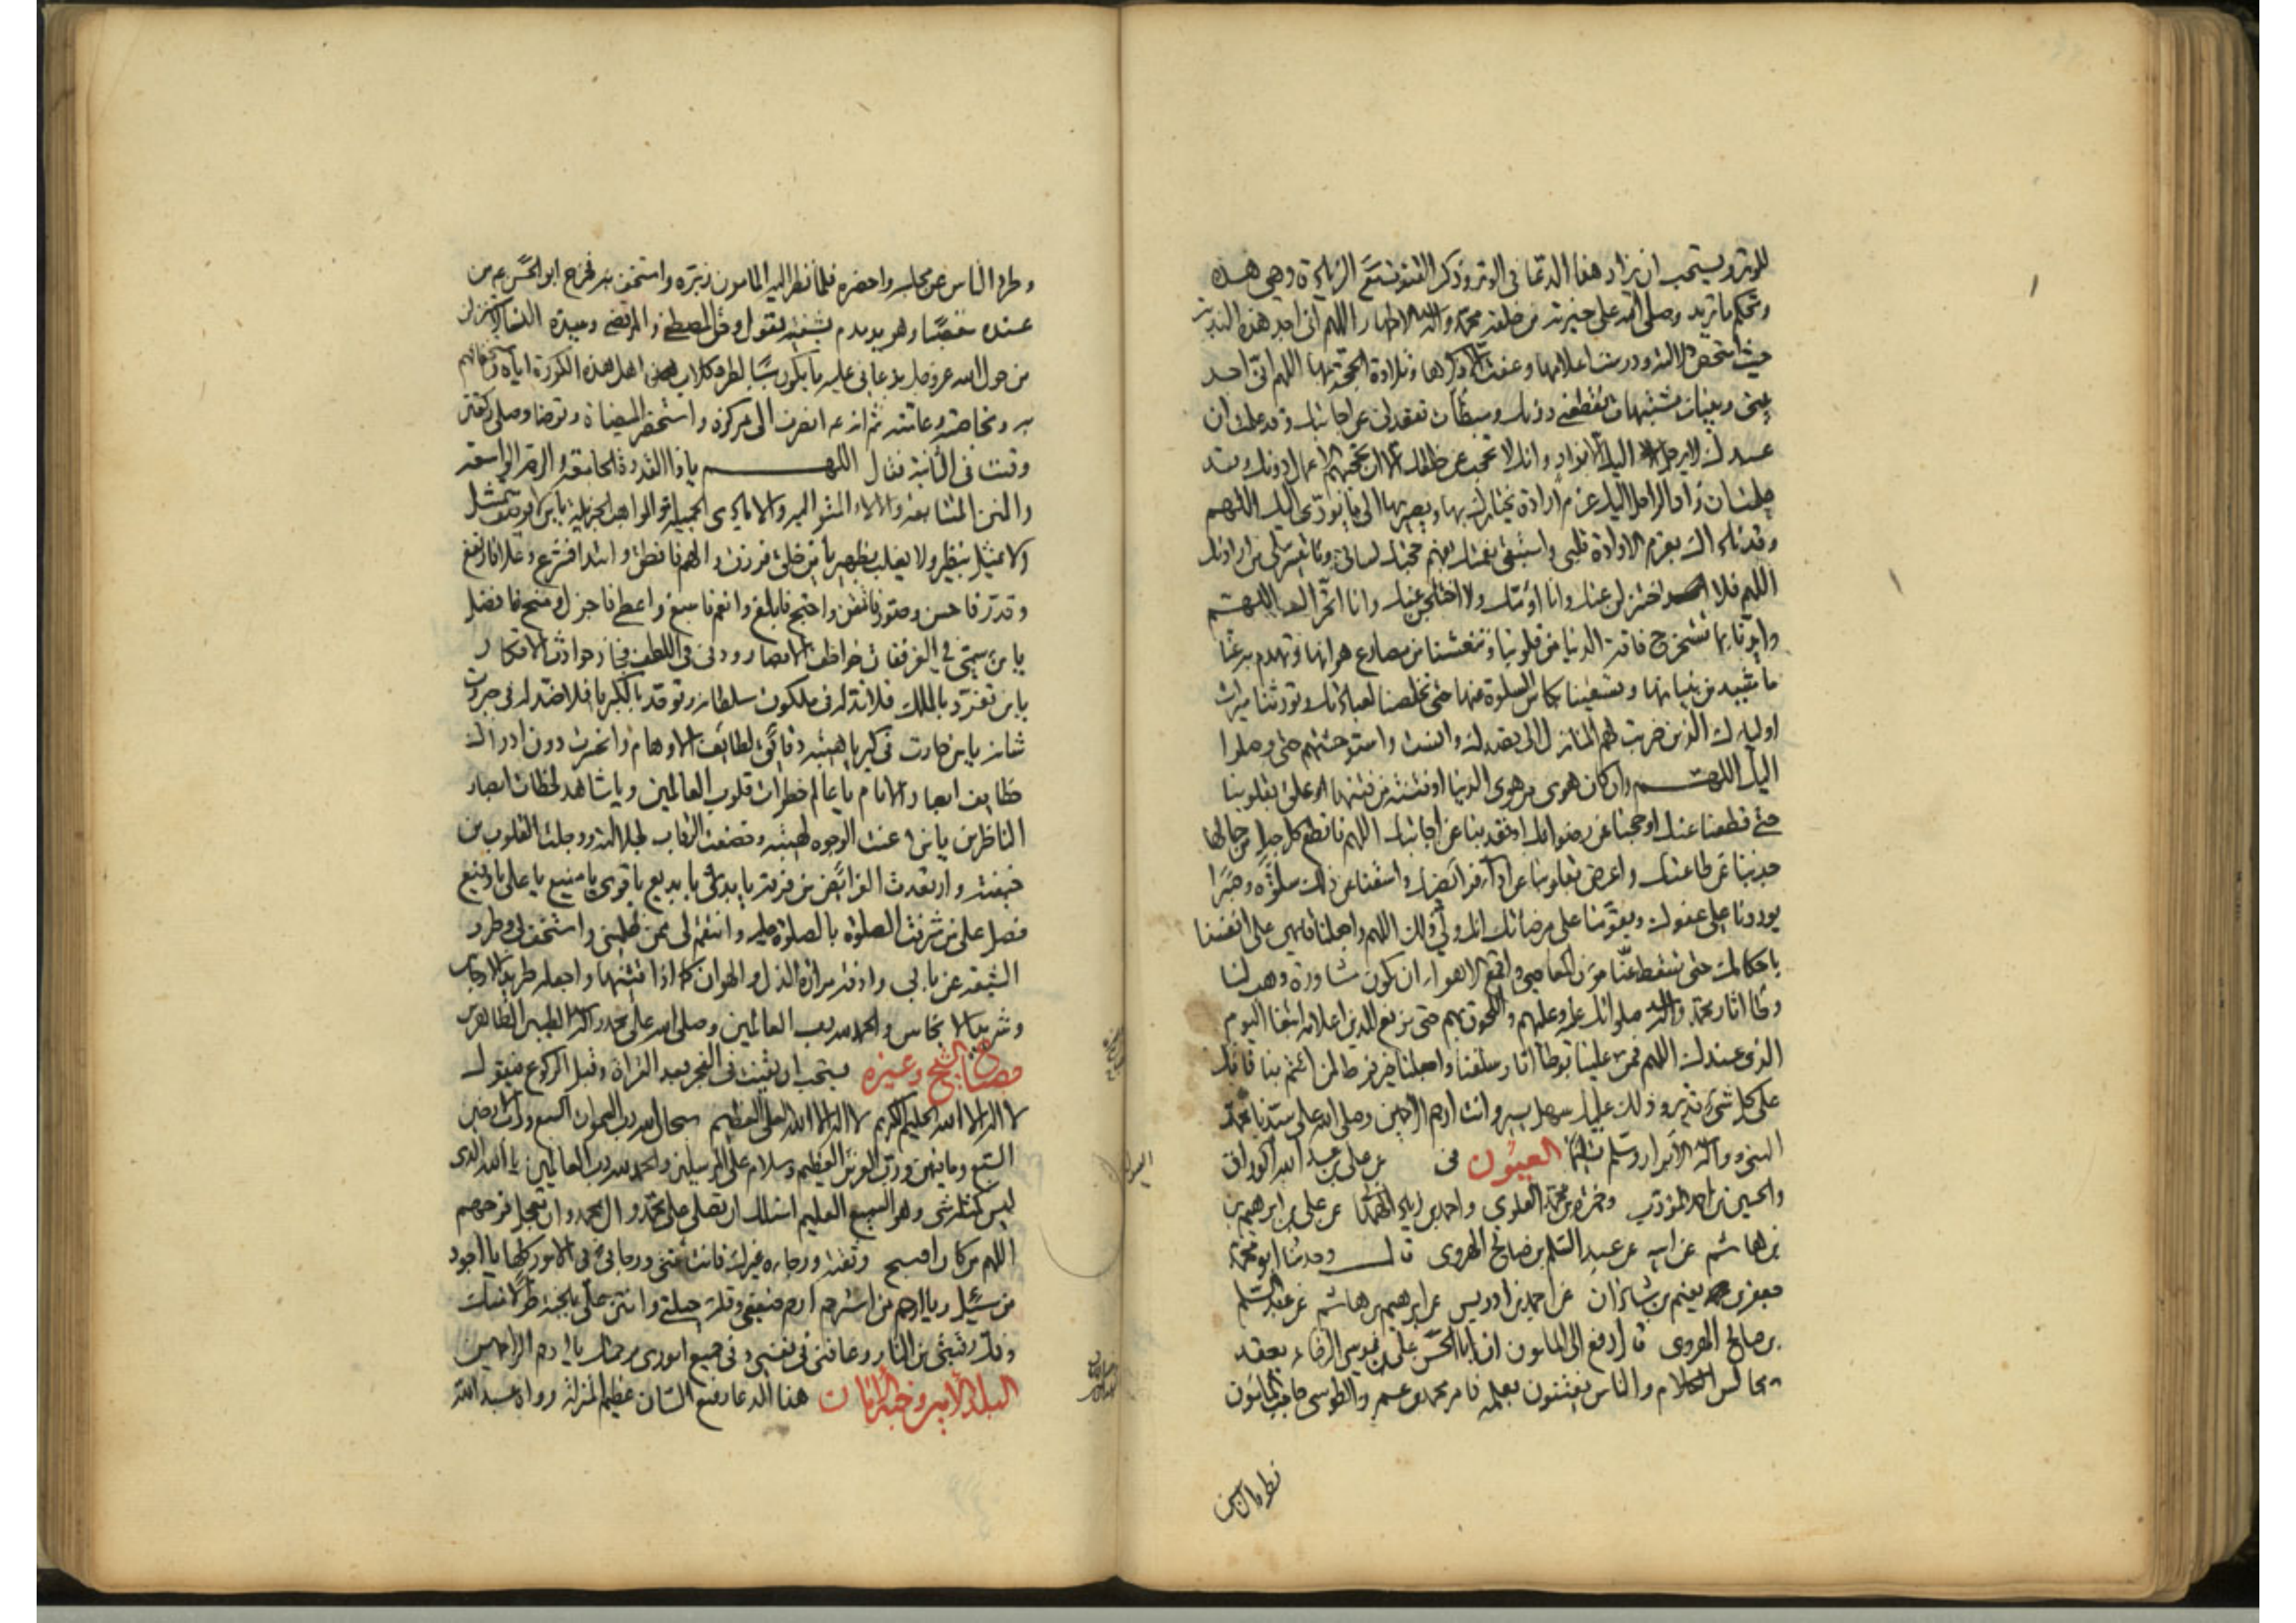 للوتر ويستحب ان يزاد هذا الدعا في الوتر وذكر القنوت مع الزيادة وهي هذه
وتحكم ما تريد وصلى الله على خيرته من خلقه محمد وآله الاطهار اللهم اني اجد هذه الندبة
حيث امتحت دلالتها ودرست اعلامها وعفت الا ذكرها وتلاوة الحجة بها اللهم اني اجد
بيني وبينك مشتبهات تقطعني دونك ومبطآت تقعدني عن اجابتك وقد علمت ان
عبدك لا يرحل اليك الا بزاد وانك لا تحجب عن خلقك الا ان تحجبهم الاعمال دونك وقد
علمت ان زاد الراحل اليك عزم ارادة يختارك بها ويصير بها الى ما يؤدي اليك اللهم
وقد ناداك بعزم الارادة قلبي واستبقى نعمتك بفهم حجتك لساني وما تيسر لي من ارادتك
اللهم فلا اختزلن عنك وانا اؤمك ولا اختلجن عنك وانا اتحراك اللهم
وايدنا بما نستخرج به فاقة الدنيا من قلوبنا وتنعشنا من مصارع هوانها وتهدم به عنا
ما شيد من بنيانها وتسقينا بكاس السلوة عنها حتى تخلصنا لعبادتك وتورثنا ميراث
اوليائك الذين ضربت لهم المنازل الى قصدك وآنست وحشتهم حتى وصلوا
اليك اللهم وان كان هوى من هوى الدنيا او فتنة من فتنها علق بقلوبنا
حتى قطعنا عنك او حجبنا عن رضوانك او قعد بنا عن اجابتك اللهم فاقطع كل حبل من حبالها
جذبنا عن طاعتك واعرض بقلوبنا عن اداء فرائضك واسقنا عن ذلك سلوة وصبرا
يوردنا على عفوك ويقومنا على مرضاتك انك ولي ذلك اللهم واجعلنا قائمين على انفسنا
باحكامك حتى تسقط عنا مؤن المعاصي واقمع الاهواء ان تكون مشاورة وهب لنا
وطأ آثار محمد وآله صلواتك عليه وعليهم واللحوق بهم حتى يرفع الدين اعلامه ابتغاء اليوم
الذي عندك اللهم فمن علينا بوطأ آثار سلفنا واجعلنا خير فرط لمن ائتم بنا فانك
على كل شيء قدير وذلك عليك سهل يسير وانت ارحم الراحمين وصلى الله على سيدنا محمد
النبي وآله الابرار وسلم تسليما العيون في عن علي بن عبد الله الوراق
والحسين بن احمد المؤدب وحمزة بن محمد العلوي واحمد بن زياد الهمداني عن علي بن ابرهيم بن
بن هاشم عن ابيه عن عبد السلم بن صالح الهروي قال وحدثنا ابو محمد
جعفر بن نعيم بن شاذان عن احمد بن ادريس عن ابرهيم بن هاشم عن عبد السلم
بن صالح الهروي قال رفع الى المامون ان ابا الحسن علي بن موسى الرضا ع يعقد
مجالس الكلام والناس يفتتنون بعلمه فامر محمد بن عمرو الطوسي حاجب المامون
فطرد الناس
وطرد الناس عن مجلسه واحضره فلما نظر اليه المامون زبره واستخف به فخرج ابو الحسن ع من
عنده مغضبا وهو يدمدم بشفتيه ويقول وحق المصطفى والمرتضى وسيدة النساء لاستنزلن
من حول الله عز وجل بدعائي عليه ما يكون سببا لطرد كلاب اهل هذه الكورة اياه واستخفافهم
به وبخاصته وعامته ثم انه ع انصرف الى مركزه واستحضر الميضاة وتوضا وصلى ركعتين
وقنت في الثانية فقال اللهم يا ذا القدرة الجامعة والرحمة الواسعة
والمنن المتتابعة والآلاء المتوالية والايادي الجميلة والمواهب الجزيلة يا من لا يوصف بتمثيل
ولا يمثل بنظير ولا يغلب بظهير يا من خلق فرزق والهم فانطق وابتدع فشرع وعلا فارتفع
وقدر فاحسن وصور فاتقن واحتج فابلغ وانعم فاسبغ واعطى فاجزل ومنح فافضل
يا من سما في العز ففات خواطف الابصار ودنى في اللطف فجاز هواجس الافكار
يا من تفرد بالملك فلا ند له في ملكوت سلطانه وتوحد بالكبرياء فلا ضد له في جبروت
شانه يا من حارت في كبرياء هيبته دقائق لطائف الاوهام وانحسرت دون ادراك
خطايف ابصار الانام يا عالم خطرات قلوب العالمين ويا شاهد لحظات ابصار
الناظرين يا من عنت الوجوه لهيبته وخضعت الرقاب لجلالته ووجلت القلوب من
خيفته وارتعدت الفرائص من فرقه يا بدئ يا بديع يا قوي يا منيع يا علي يا رفيع
فصل على من شرفت الصلوة بالصلوة عليه وانتقم لي ممن ظلمني واستخف بي وطرد
الشيعة عن بابي واذقه مرارة الذل والهوان كما اذاقنيها واجعله طريد الارجاس
وشريد الانجاس والحمد لله رب العالمين وصلى الله على محمد وآله الطيبين الطاهرين
مصباح الشيخ وغيره يستحب ان يقنت في الفجر بعد القراة وقبل الركوع فيقول
لا اله الا الله الحليم الكريم لا اله الا الله العلي العظيم سبحان الله رب السموات السبع ورب الارضين
السبع وما بينهن ورب العرش العظيم وسلام على المرسلين والحمد لله رب العالمين يا الله الذي
ليس كمثله شي وهو السميع العليم اسالك ان تصلي على محمد وال محمد وان تعجل فرجهم
اللهم من كان اصبح وثقته ورجاءه غيرك فانت ثقتي ورجائي في الامور كلها يا اجود
من سئل ويا ارحم من استرحم ارحم ضعفي وقلة حيلتي وامنن علي بالجنة طولا منك
وفك رقبتي من النار وعافني في نفسي وفي جميع اموري برحمتك يا ارحم الراحمين
البلد الامين وجنة الامان هذا الدعا رفيع الشان عظيم المنزلة رواه عبد الله